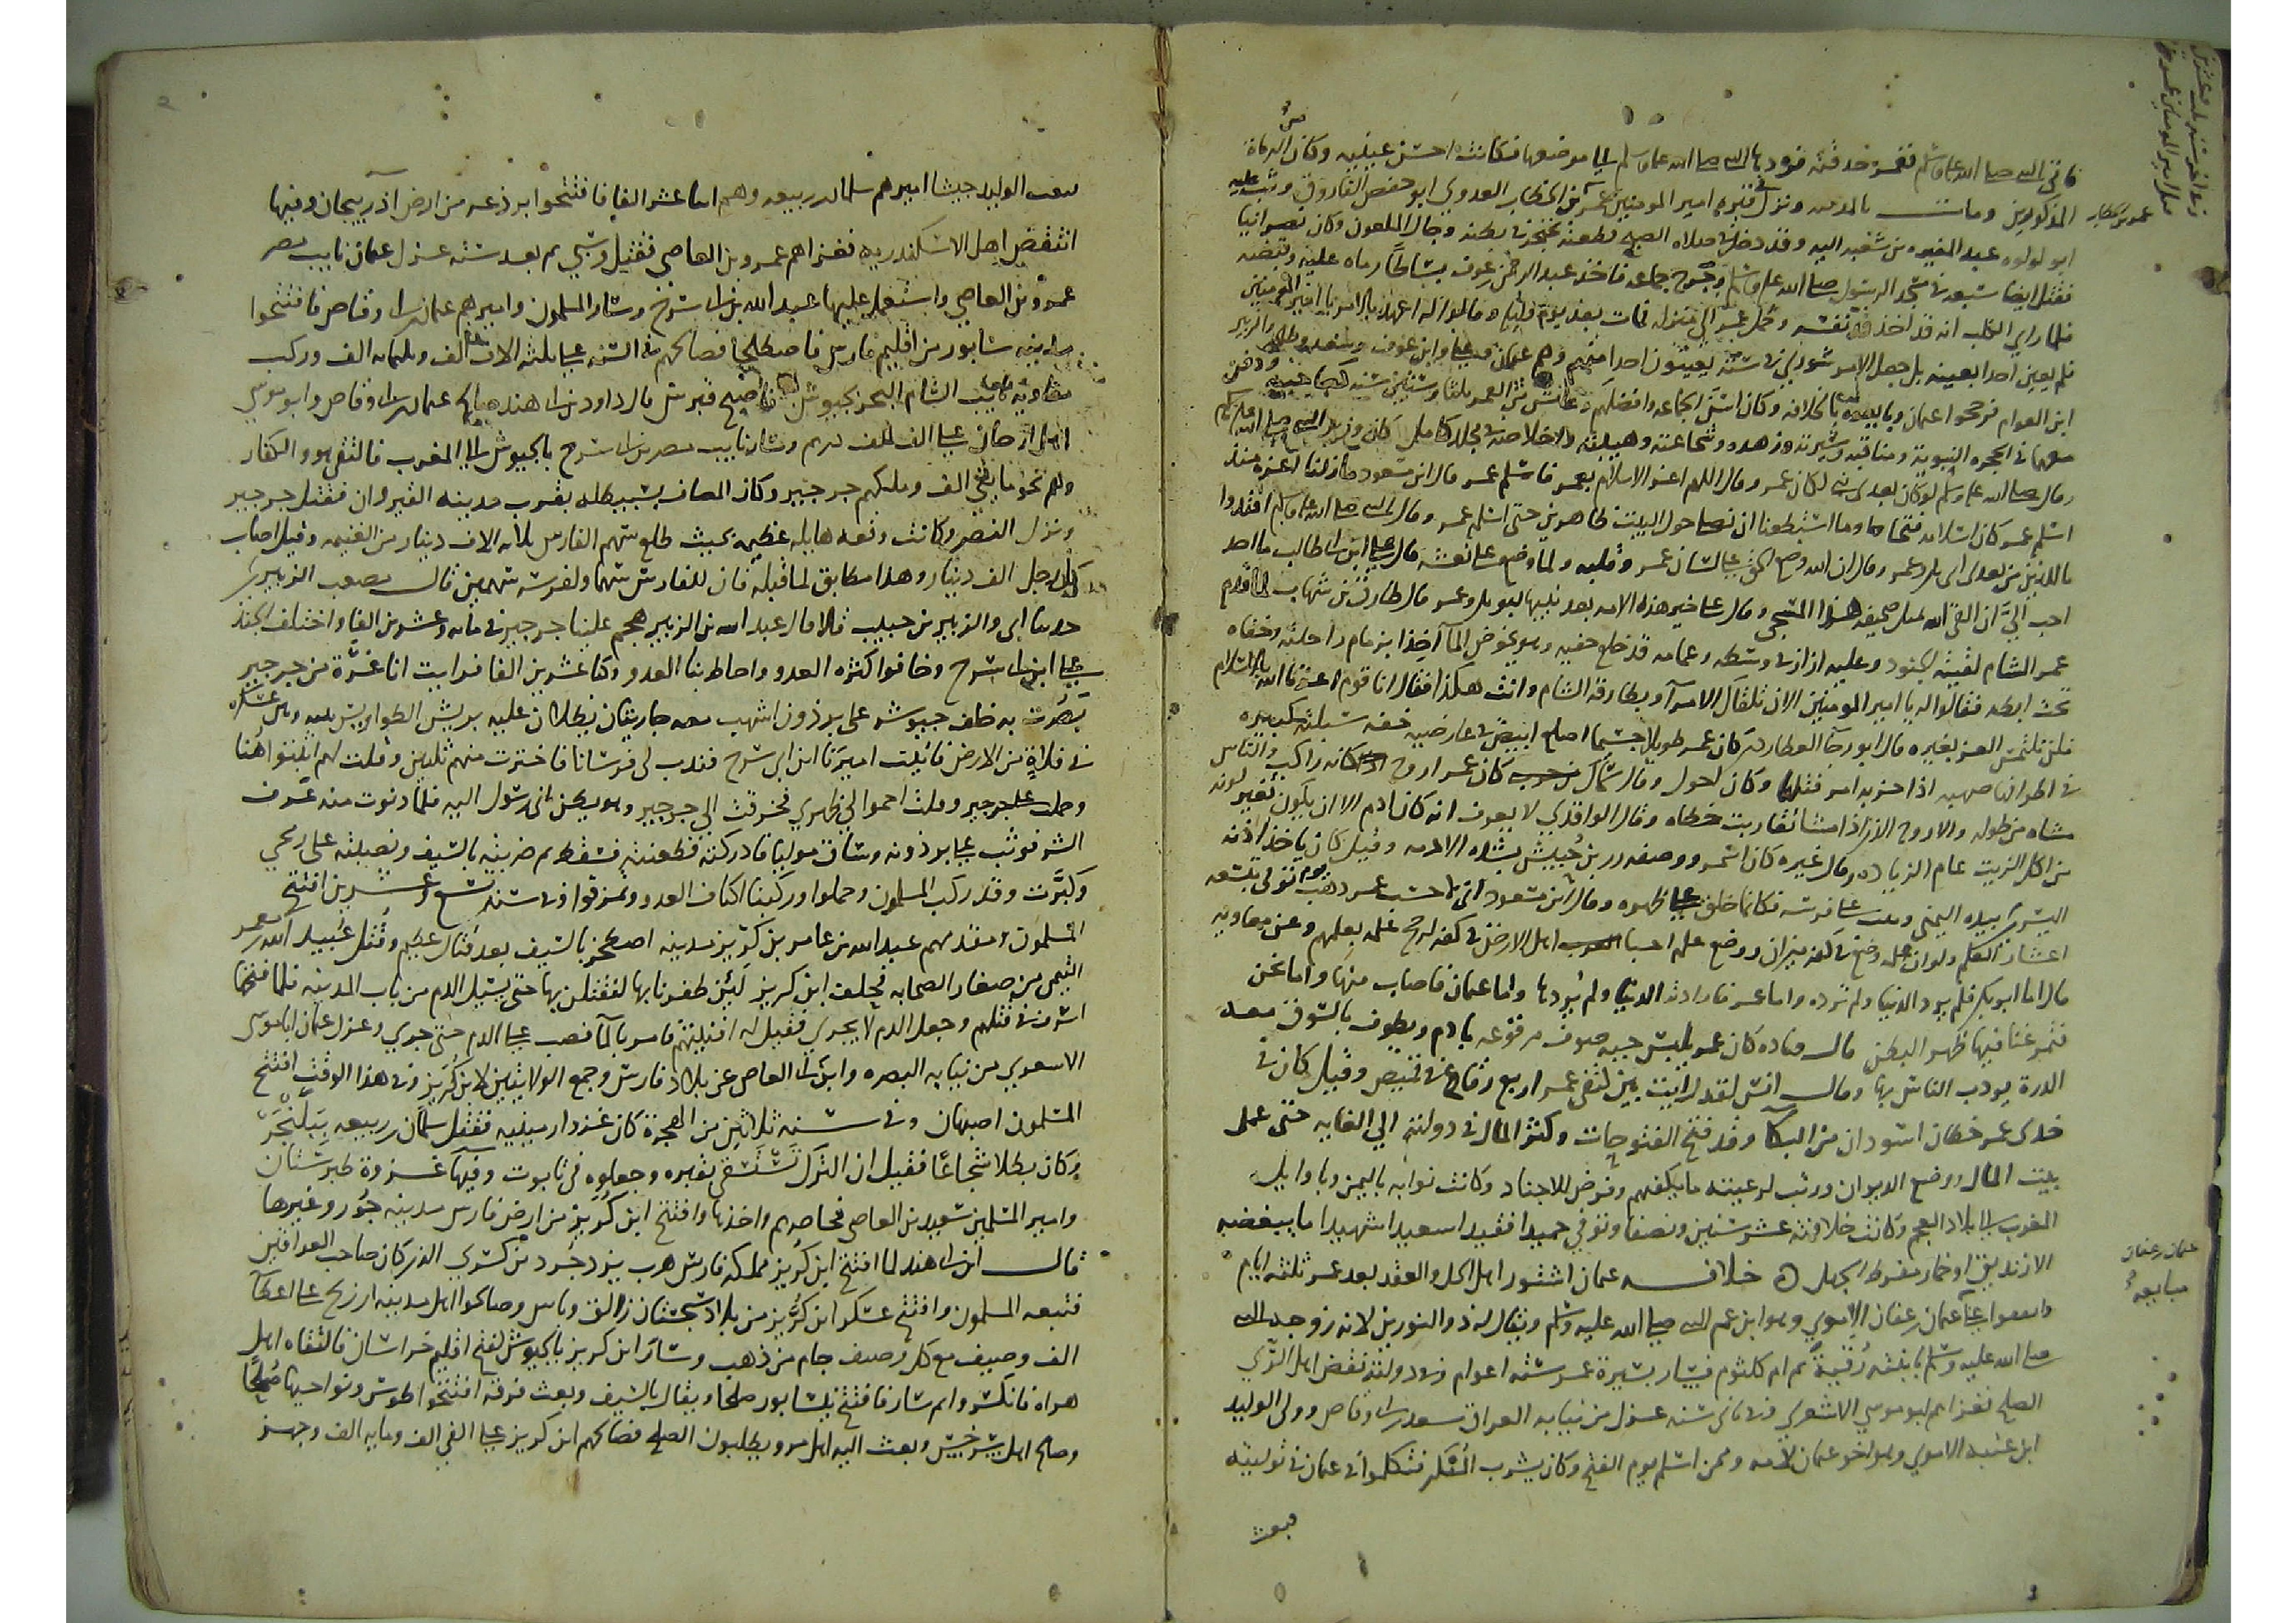 عمر بن الخطاب
المذكورين ومات بالمدينة ونزل في قبره امير المومنين عمر بن الخطاب العدوي ابو حفص الفاروق وثب عليه
ابو لولوه عبد المغيره بن شعبه اليه وقد دخل في صلاه الصبح فطعنه بخنجر في بطنه وجال الملعون وكان نصرانيا
فقتل ايضا سبعه في مسجد الرسول صلى الله عليه وسلم وجرح جماعه فاخذ عبد الرحمن بن عوف بساطا رماه عليه وقبضه
فلما راي الكلب انه قد اخذ قتل نفسه وحمل عمر الي منزله فمات بعد يوم وليله وقالوا له اعهد بالامر يا امير المومنين
فلم يعين احدا بعينه بل جعل الامر شوري في ستة يعينون احدا منهم وهم عثمان وعلي وابن عوف وسعد وطلحه والزبير
ابن العوام فرجحوا عثمان وبايعوه بالخلافه وكان اسن الجماعه وافضلهم وعاش من العمر ثلثا وستين سنه ودفن
معهما في الحجره النبوية ومناقبه وسيرته وزهده وشجاعته وهيبته واخلاصه في مجلد كامل
وقال صلى الله عليه وسلم لو كان بعدي نبي لكان عمر وقال اللهم اعز الاسلام بعمر فاسلم عمر قال ابن مسعود ما زلنا اعزة منذ
اسلم عمر كان اسلامه فتحا وما استطعنا ان نصلي حول البيت ظاهرين حتى اسلم عمر وقال النبي صلى الله عليه وسلم اقتدوا
باللذين من بعدي ابي بكر وعمر وقال ان الله وضع الحق على لسان عمر وقلبه ولما وضع على نعشه قال علي ابن ابي طالب ما احد
احب الي ان القي الله بمثل صحيفته من هذا المسجي وقال علي خير هذه الامه بعد نبيها ابو بكر وعمر قال طارق بن شهاب لما قدم
عمر الشام لقيته الجنود وعليه ازار في وسطه وعمامه قد خلع خفيه وهو يخوض الما آخذا بزمام راحلته وخفاه
تحت ابطه فقالوا له يا امير المومنين الان تلقاك الامرآ وبطارقة الشام وانت هكذا فقال انا قوم اعزنا الله بالاسلام
فلن نلتمس العز بغيره قال ابو رجآ العطاردي كان عمر طويلا جسيما اصلع ابيض في عارضيه خفه سبلته كبيره
في اطرافها صهبه اذا حزبه امر فتلها وكان احول وقال سماك بن حرب كان عمر اروح كانه راكب والناس
مشاه من طوله والاروح الذي اذا مشا تقاربت خطاه وقال الواقدي لا يعرف انه كان ادم الا ان يكون تغير لونه
من اكل الزيت عام الرماده وقال غيره كان اسمر ووصفه زر بن حبيش بشده الادمه وقيل كان ياخذ اذنه
اليسري بيده اليمني ويثب على فرسه فكانما خلق على ظهره وقال ابن مسعود اني لاحسب عمر ذهب يوم توفي بتسعه
اعشار العلم ولو ان علمه وضع في كفه ميزان ووضع علم احيا اهل الارض في كفه لرجح علمه بعلمهم وعن معاويه
قال اما ابو بكر فلم يرد الدنيا ولم ترده واما عمر فارادته الدنيا ولم يردها واما عثمان فاصاب منها واما نحن
فتمرغنا فيها ظهرا لبطن وقال قتاده كان عمر يلبس جبه صوف مرقوعه بادم ويطوف بالسوق معه
الدرة يودب الناس بها وقال انس لقد رايت بين كتفي عمر اربع رقاع في قميص وقيل كان في
خدي عمر خطان اسودان من البكآ وقد فتح الفتوحات وكثر المال في دولته الي الغايه حتى عمل
بيت المال ووضع الديوان ورتب لرعيته ما يكفيهم وفرض للاجناد وكانت نوابه باليمن وباوايل
المغرب الى بلاد العجم وكانت خلافته عشر سنين ونصفا وتوفي حميدا فقيدا سعيدا شهيدا ما يبغضه
الا زنديق او حمار مفرط الجهل خلافه عثمان اشتور اهل الحل والعقد بعد عمر ثلثه ايام
عثمان بن عفان
مبايعة
وبايعوا عثمان بن عفان الاموي وهو ابن عم النبي صلى الله عليه وسلم ويقال له ذو النورين لانه زوجه النبي
صلى الله عليه وسلم بابنته رقية ثم ام كلثوم فسار بسيرة عمر ستة اعوام وفي دولته نقض اهل الري
الصلح فغزاهم ابو موسي الاشعري وفي ثاني سنه عزل من نيابه العراق سعد بن ابي وقاص وولي الوليد
ابن عقبه الاموي وهو اخو عثمان لامه وممن اسلم يوم الفتح وكان يشرب المسكر فتكلموا في عثمان في توليته
فبعث
فبعث الوليد جيشا اميرهم سلمان بن ربيعه وهم اثنا عشر الفا فافتتحوا برذعه من ارض آذربيجان وفيها
انتقض اهل الاسكندريه فغزاهم عمرو بن العاصي فقتل وسبي ثم بعد سنه عزل عثمان نايب مصر
عمرو بن العاصي واستعمل عليها عبد الله بن ابي سرح وسار المسلمون واميرهم عثمان بن ابي وقاص فافتتحوا
مدينه سابور من اقليم فارس فاصطلحا فصالحهم في السنه على ثلثه الاف الف وثلثمايه الف وركب
معاوية نايب الشام البحر بجيوش فافتتح قبرس قال داود بن ابي هند صالح عثمان بن ابي وقاص وابو موسي
اهل ارجان على الف الف درهم وسار نايب مصر بن ابي سرح بالجيوش الى المغرب فالتقي هو والكفار
وهم نحو مايتي الف وملكهم جرجير وكان المصاف بسبيطله بقرب مدينه القيروان فقتل جرجير
ونزل النصر وكانت وقعه هايله عظيمه بحيث طلع سهم الفارس ثلثه الاف دينار من الغنيمه وقيل اصاب
كل رجل الف دينار وهذا مطابق لما قبله فان للفارس سهما ولفرسه سهمين قال مصعب الزبيري
حدثنا ابي والزبير بن حبيب قالا قال عبد الله بن الزبير هجم علينا جرجير في مايه وعشرين الفا واختلف الجند
على ابن ابي سرح وخافوا كثره العدو واحاط بنا العدو وكنا عشرين الفا فرايت انا غرة من جرجير
بصرت به خلف جيوشه على برذون اشهب معه جاريتان تظللان عليه بريش الطواويس بينه وبين عسكره
في فلاة من الارض فاتيت اميرنا ابن ابي سرح فندب لي فرسانا فاخترت منهم ثلثين وقلت لهم اثبتوا هنا
وحملت على جرجير وقلت احموا لي ظهري فخرقت الي جرجير وهو يظن اني رسول اليه فلما دنوت منه عرف
الشر فوثب على برذونه وساق موليا فادركته فطعنته فسقط ثم ضربته بالسيف ونصبته على رمحي
وكبرت وقد ركب المسلمون وحملوا وركبنا اكتاف العدو وتمزقوا وفي سنه تسع وعشرين افتتح
المسلمون ومقدمهم عبد الله بن عامر بن كريز مدينه اصطخر بالسيف بعد قتال عظيم وقتل عبيد الله بن معمر
التيمي من صغار الصحابه فحلف ابن كريز لئن ظفر بها لنقتلن بها حتى يسيل الدم من باب المدينه فلما فتحها
اسرف في قتلهم وجعل الدم لا يجري فقيل له افنيتهم فامر بالمآ فصب على الدم حتى جري وعزل عثمان ابا موسي
الاشعري من نيابه البصره وابن ابي العاص عن بلاد فارس وجمع الولايتين لابن كريز وفي هذا الوقت افتتح
المسلمون اصبهان وفي سنه ثلاثين من الهجرة كان غزو ارمينيه فقتل سلمان بن ربيعه ببلنجر
وكان بطلا شجاعا فقيل ان الترك تستسقي بقبره وجعلوه في تابوت وفيها غزوة طبرستان
وامير المسلمين سعيد بن العاصي فحاصرهم واخذها وافتتح ابن كريز من ارض فارس مدينه جور وغيرها
قال ابن ابي هند لما افتتح ابن كريز مملكه فارس هرب يزدجرد بن كسري الذي كان صاحب العراقين
فتبعه المسلمون وافتتح عسكر ابن كريز من بلاد سجستان زالق وصالحوا اهل مدينه زرنج على اعطآ
الف وصيف مع كل وصيف جام من ذهب وسار ابن كريز بالجيوش لفتح اقليم خراسان فالتقاه اهل
هراه فانكسروا ثم سار فافتتح نيسابور صلحا ويقال بالسيف وبعث فرقه افتتحوا طوس ونواحيها صلحا
وصالح اهل سرخس وبعث اليه اهل مرو يطلبون الصلح فصالحهم ابن كريز على الفي الف ومايه الف وجهز